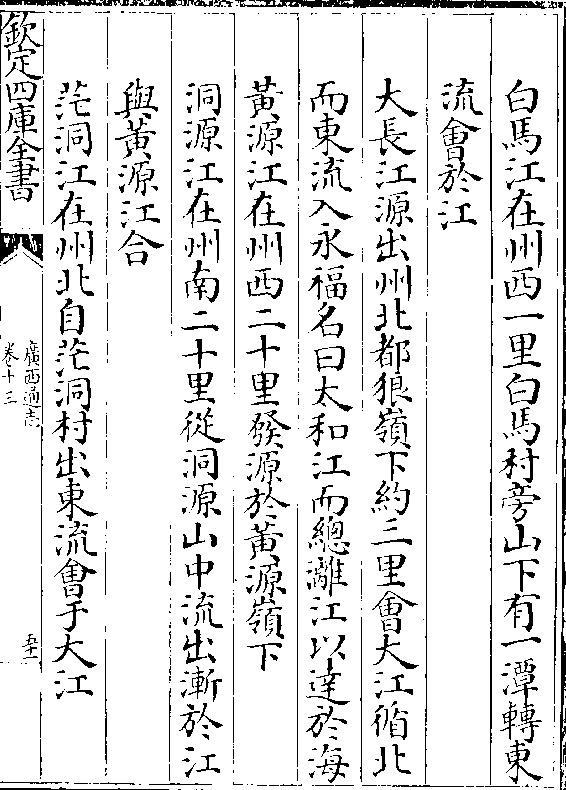 白馬江在州西一里白馬村旁山下有一潭轉東
流會於江
大長江源出州北都狼嶺下約三里會大江循北
而東流入永福名曰太和江而總離江以達於海
黃源江在州西二十里發源於黃源嶺下
洞源江在州南二十里從洞源山中流出漸於江
與黃源江合
茫洞江在州北自茫洞村出東流會于大江
欽定四庫全書
廣西通志
卷十三